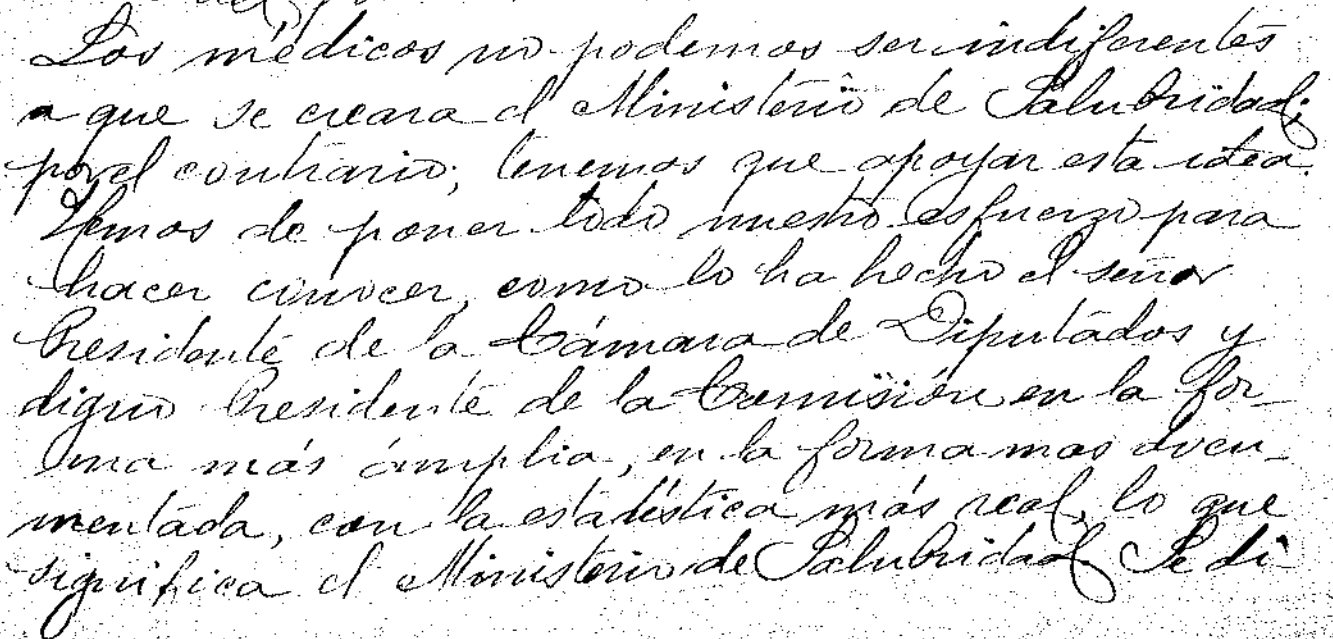 Los médicos no podemos ser indiferentes
a que se creara el Ministerio de Salubridad;
por el contrario; tenemos que apoyar esta idea.
Hemos de poner todo nuestro esfuerzo para
hacer conocer, como lo ha hecho el señor
Presidente de la Cámara de Diputados y
digno Presidente de la Comisión en la for-
ma más ámplia, en la forma mas docu-
mentada, con la estadística más real, lo que
significa el Ministerio de Salubridad. Se di-